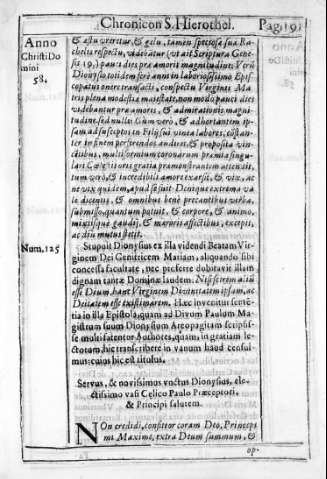 Chronicon S. Hierothei. Pag. 19
Anno
Christi Do
mini
58.
& æstu vreretur, & gelu, tamen speciosæ suæ Ra-
chelis respectu, videbatur (vt ait Scriptura Gene-
sis 29.) pauci dies præ amoris magnitudine. Verū
Dionysio totidem ferè annis in laboriosissimo Epis-
copatus onere transactis, conspectu Virginis Ma-
tris plena modestiæ maiestate, non modo pauci dies
videbantur præ amoris, & admirationis magni-
tudine, sed nulli. Cum verò, & adhortantem ip-
sam ad susceptos in Filij sui vinea labores, cōstan-
ter in finem perferendos audiret, & proposita vin-
centibus, multiformium coronarum præmia
Cælestis oris gratia
tum verò, & incredibili amore exarsit, & vix, ac
ne vix quidem, apud se fuit. Denique extremum va-
le dicentis, & omnibus bene precantibus verba,
submisso, quantum potuit, & corpore, & animo,
mixtisque gaudij, & mœroris affectibus, excepit,
ac diu mutus stetit.
Num. 125
Stupuit Dionysius ex illa videndi Beatam Vir-
ginem Dei Genitricem Mariam, aliquando sibi
concessa facultate, nec proferre dubitauit illam
dignam tantæ Dominæ laudem. Nisi scirem
esse Dium, hanc Virginem Diuinitatem ipsam, ac
Deitatem esse existimarem. Hæc inuenitur sentē-
tia in illa Epistola, quam ad Diuum Paulum Ma-
gistrum suum Dionysium Areopagitam scripsis-
se multi fatentur Authores, quam, in gratiam le-
ctorum, hic transcribere in vanum haud censui-
mus: cuius hic est titulus.
Seruus, & nouissimus vnctus Dionysius, ele-
ctissimo vasi Cælico Paulo Præceptori,
& Principi salutem.
NOn credidi, confiteor coram Deo, Princeps
mi Maxime, extra Deum summum, &
op-